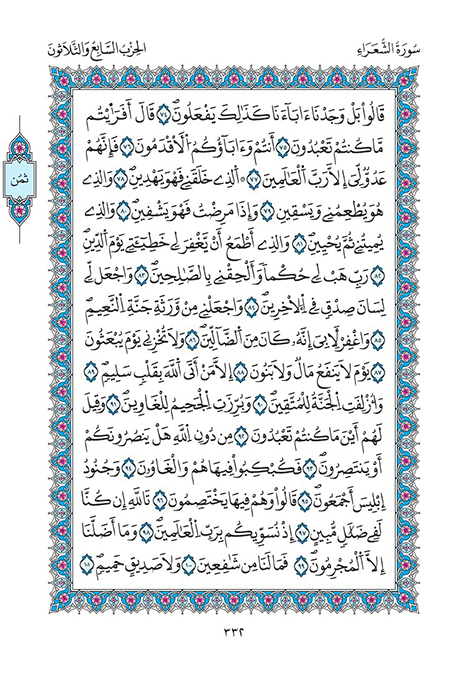 سُورَةُ الشُّعَرَاءِ
الحِزْبُ السَّابِعُ وَالثَّلَاثُونَ
قَالُواْ بَلْ وَجَدْنَا ءَابَآءَنَا كَذَٰلِكَ يَفْعَلُونَ ٧٤ قَالَ أَفَرَٰٓيْتُم
مَّا كُنتُمْ تَعْبُدُونَ ٧٥ أَنتُمْ وَءَابَآؤُكُمُ اُلْأَقْدَمُونَ ٧٦ فَإِنَّهُمْ
عَدُوٌّ لِّيَ إِلَّا رَبَّ اَلْعَٰلَمِينَ ٧٧ اَلذِے خَلَقَنِے فَهُوَ يَهْدِينِ ٧٨ وَالذِے
هُوَ يُطْعِمُنِے وَيَسْقِينِ ٧٩ وَإِذَا مَرِضْتُ فَهُوَ يَشْفِينِ ٨٠ وَالذِے
يُمِيتُنِے ثُمَّ يُحْيِينِ ٨١ وَالذِے أَطْمَعُ أَنْ يَّغْفِرَ لِے خَطِيٓـَٔتِے يَوْمَ اَلدِّينِ
٨٢ رَبِّ هَبْ لِے حُكْماً وَأَلْحِقْنِے بِالصَّٰلِحِينَ ٨٣ وَاجْعَل لِّے
لِسَانَ صِدْقٍ فِے اِلَاخِرِينَ ٨٤ وَاجْعَلْنِے مِنْ وَّرَثَةِ جَنَّةِ اِلنَّعِيمِ
٨٥ وَاغْفِرْ لِأَبِيَ إِنَّهُۥ كَانَ مِنَ اَلضَّآلِّينَ ٨٦ وَلَا تُخْزِنِے يَوْمَ يُبْعَثُونَ
٨٧ يَوْمَ لَا يَنفَعُ مَالٌ وَلَا بَنُونَ ٨٨ إِلَّا مَنْ أَتَى اَللَّهَ بِقَلْبٍ سَلِيمٍ ٨٩
وَأُزْلِفَتِ اِلْجَنَّةُ لِلْمُتَّقِينَ ٩٠ وَبُرِّزَتِ اِلْجَحِيمُ لِلْغَاوِينَ ٩١ وَقِيلَ
لَهُمْ أَيْنَ مَا كُنتُمْ تَعْبُدُونَ ٩٢ مِن دُونِ اِللَّهِ هَلْ يَنصُرُونَكُمْ
أَوْ يَنتَصِرُونَ ٩٣ فَكُبْكِبُواْ فِيهَا هُمْ وَالْغَاوُۥنَ ٩٤ وَجُنُودُ
إِبْلِيسَ أَجْمَعُونَ ٩٥ قَالُواْ وَهُمْ فِيهَا يَخْتَصِمُونَ ٩٦ تَاللَّهِ إِن كُنَّا
لَفِے ضَلَٰلٍ مُّبِينٍ ٩٧ إِذْ نُسَوِّيكُم بِرَبِّ اِلْعَٰلَمِينَ ٩٨ وَمَا أَضَلَّنَا
إِلَّا اَلْمُجْرِمُونَ ٩٩ فَمَا لَنَا مِن شَٰفِعِينَ ١٠٠ وَلَا صَدِيقٍ حَمِيمٍ ١٠١
ثُمُن
٣٣٢